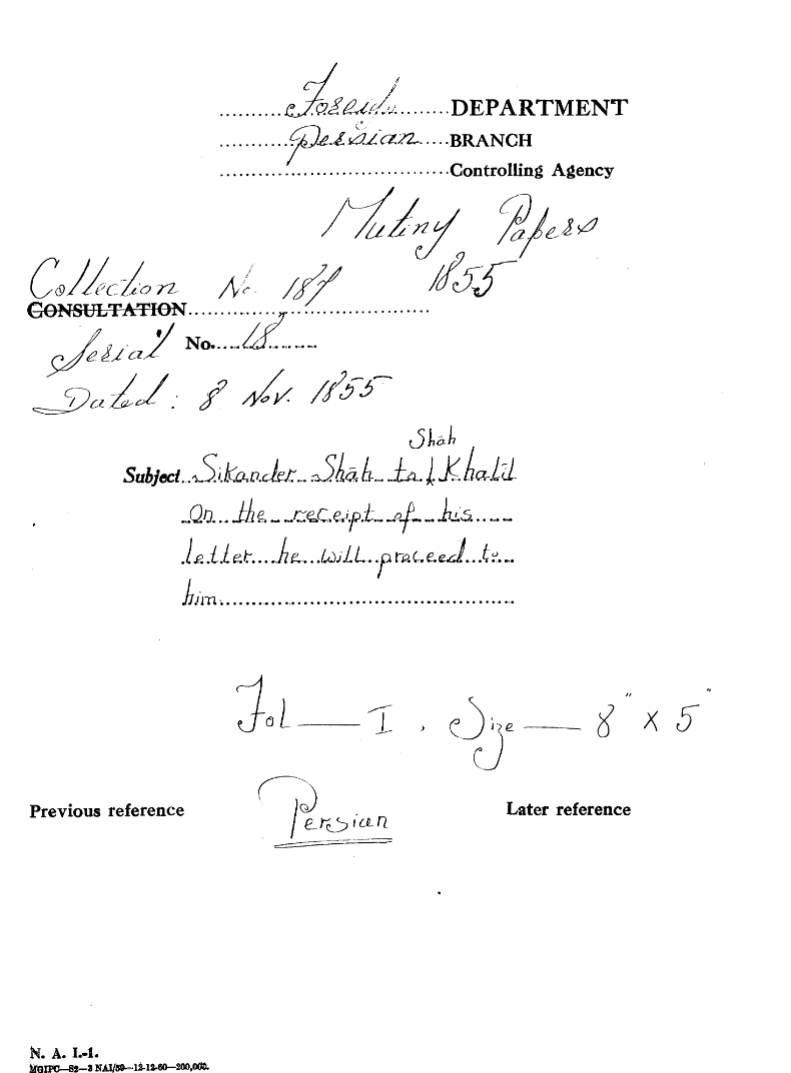 DEPARTMENT
Persian BRANCH
Controlling Agency
Mutiny Papers
Collection No. 187 1855
CONSULTATION
Serial No. 18
Dated : 8 Nov. 1855
Shāh
Subject Sikander Shāh to Khalil
On the receipt of his
letter he will proceed to
him
Fol — I . Size — 8" x 5"
Persian
Previous reference Later reference
N. A. I.-1.
MGIPC—S2—3 NAI/59—12-12-60—200,000.